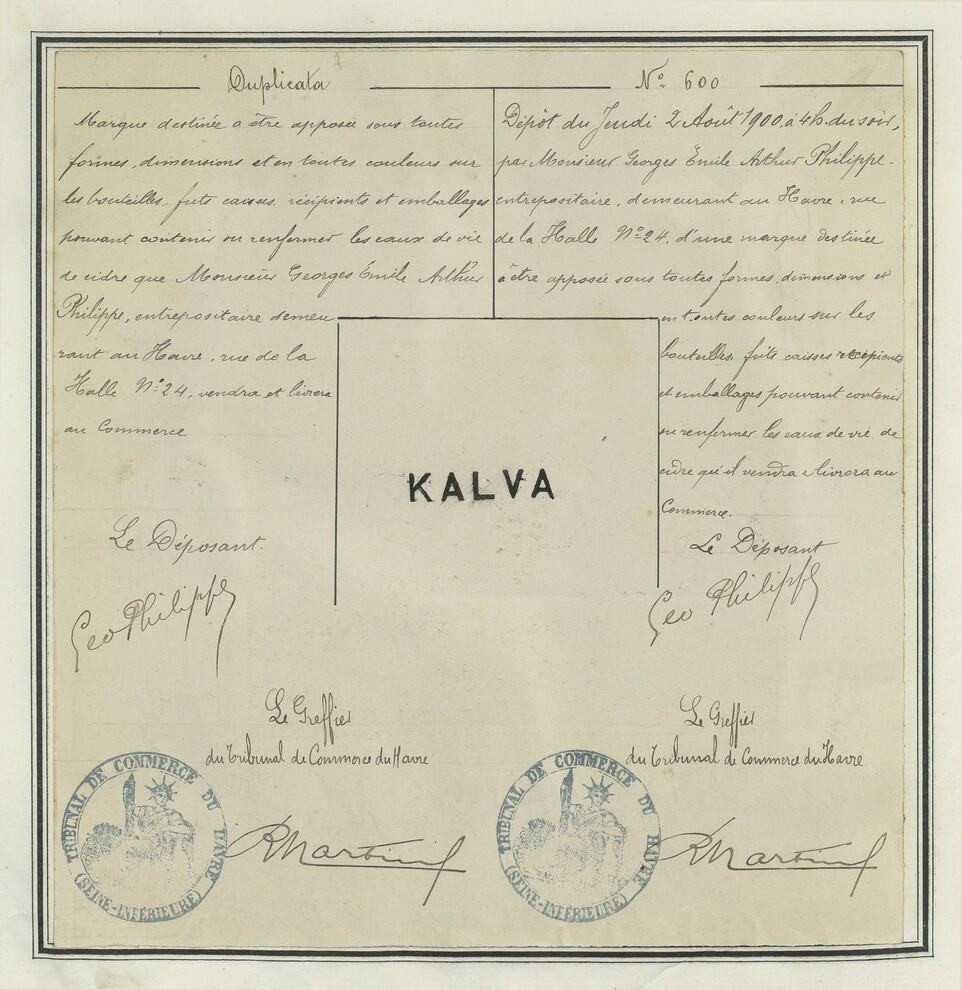 Duplicata
Marque destinée a être apposée sous toutes
formes, dimensions et en toutes couleurs sur
les bouteilles, futs caisses, récipients et emballages
pouvant contenir ou renfermer les eaux de vie
de cidre que Monsieur Georges Émile Arthur
Philippe, entrepositaire demeu
rant au Havre, rue de la
Halle N° 24, vendra et livrera
au Commerce
Le Déposant.
Geo Philippe
Le Greffier
du Tribunal de Commerce du Havre
TRIBUNAL DE COMMERCE DU HAVRE
(SEINE-INFÉRIEURE)
KALVA
N° 600
Dépôt du Jeudi 2 Août 1900, à 4h. du soir,
par Monsieur Georges Émile Arthur Philippe
entrepositaire, demeurant au Havre, rue
de la Halle N° 24, d'une marque destinée
à être apposée sous toutes formes, dimensions et
en toutes couleurs sur les
bouteilles, futs caisses récipients
et emballages pouvant contenir
ou renfermer les eaux de vie de
cidre qu'il vendra & livrera au
Commerce.
Le Déposant
Geo Philippe
Le Greffier
du Tribunal de Commerce du Havre
TRIBUNAL DE COMMERCE DU HAVRE
(SEINE-INFÉRIEURE)